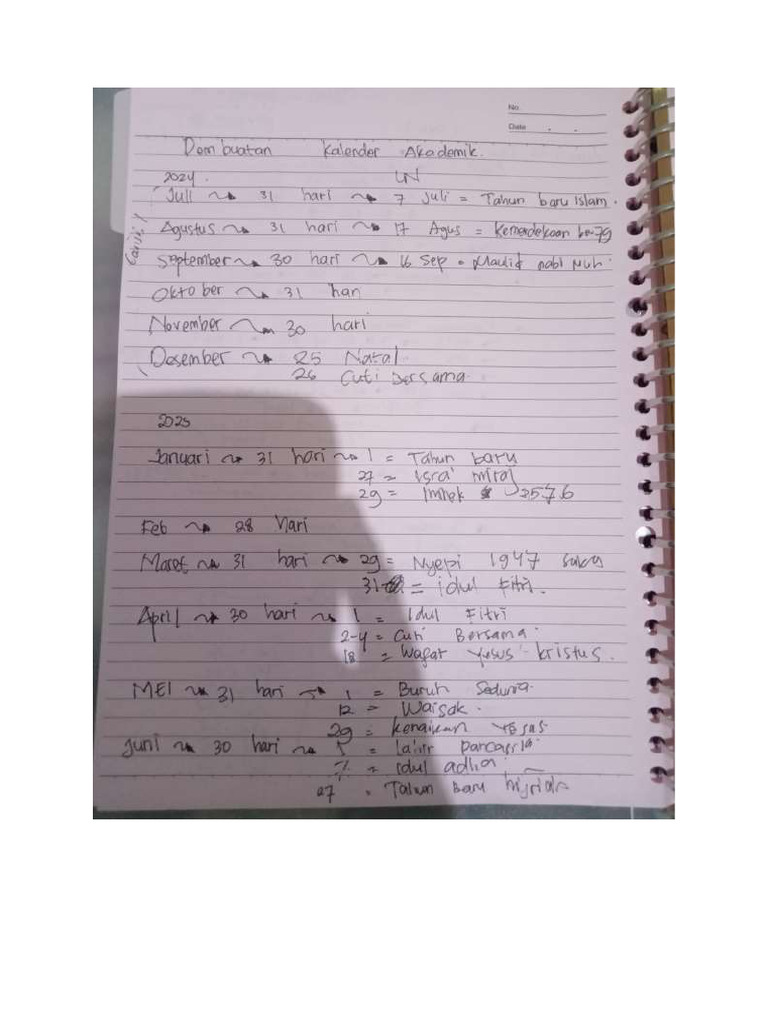 No.
Date . .
Pembuatan Kalender Akademik.
2024. LN
Juli ~> 31 hari ~> 7 Juli = Tahun baru Islam.
Agustus ~> 31 hari ~> 17 Agus = Kemerdekaan ke-79
September ~> 30 hari ~> 16 Sep = Maulid nabi Muh.
Oktober ~> 31 hari
November ~> 30 hari
Desember ~> 25 Natal
26 Cuti Bersama
2025
Januari ~> 31 hari ~> 1 = Tahun baru
27 = Isra' miraj
29 = Imlek 2576
Feb ~> 28 Hari
Maret ~> 31 hari ~> 29 = Nyepi 1947 Saka
31 = idul Fitri.
April ~> 30 hari ~> 1 = Idul Fitri
2-4 = Cuti Bersama.
18 = Wafat Yesus kristus.
MEI ~> 31 hari ~> 1 = Buruh Sedunia.
12 = Waisak.
29 = kenaikan YESUS
Juni ~> 30 hari ~> = lahir
= idul adha
27 = Tahun Baru hijriah